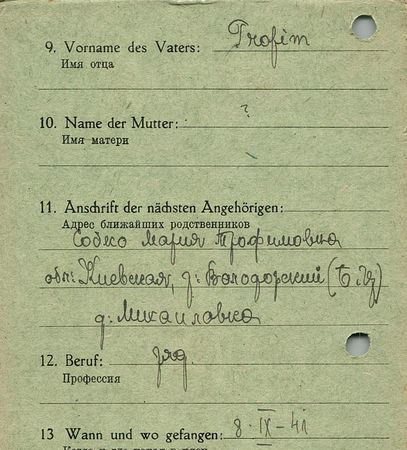 9. Vorname des Vaters: Trofim
Имя отца
10. Name der Mutter: ?
Имя матери
11. Anschrift der nächsten Angehörigen:
Адрес ближайших родственников
Собко Мария Трофимовна
обл: Киевская, р: Володорский
д: Михаиловка
12. Beruf: ряд
Профессия
13 Wann und wo gefangen: 8-IX-41